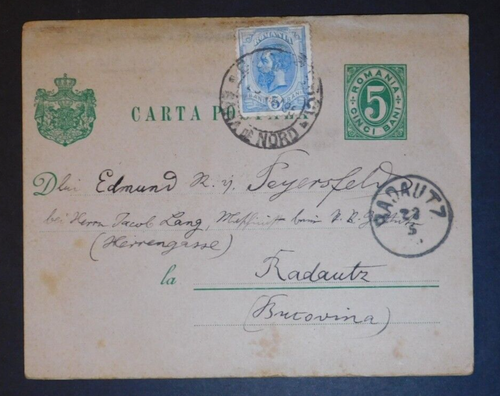 ROMANIA
5
CARTA PO
ROMANIA
5
CINCI BANI
DE NORD
Dlui Edmund R. v. Feyersfeld
bei Herrn Jacob Lang,
(Herrengasse)
RADAUTZ
23
5
la Radautz
(Bucovina)